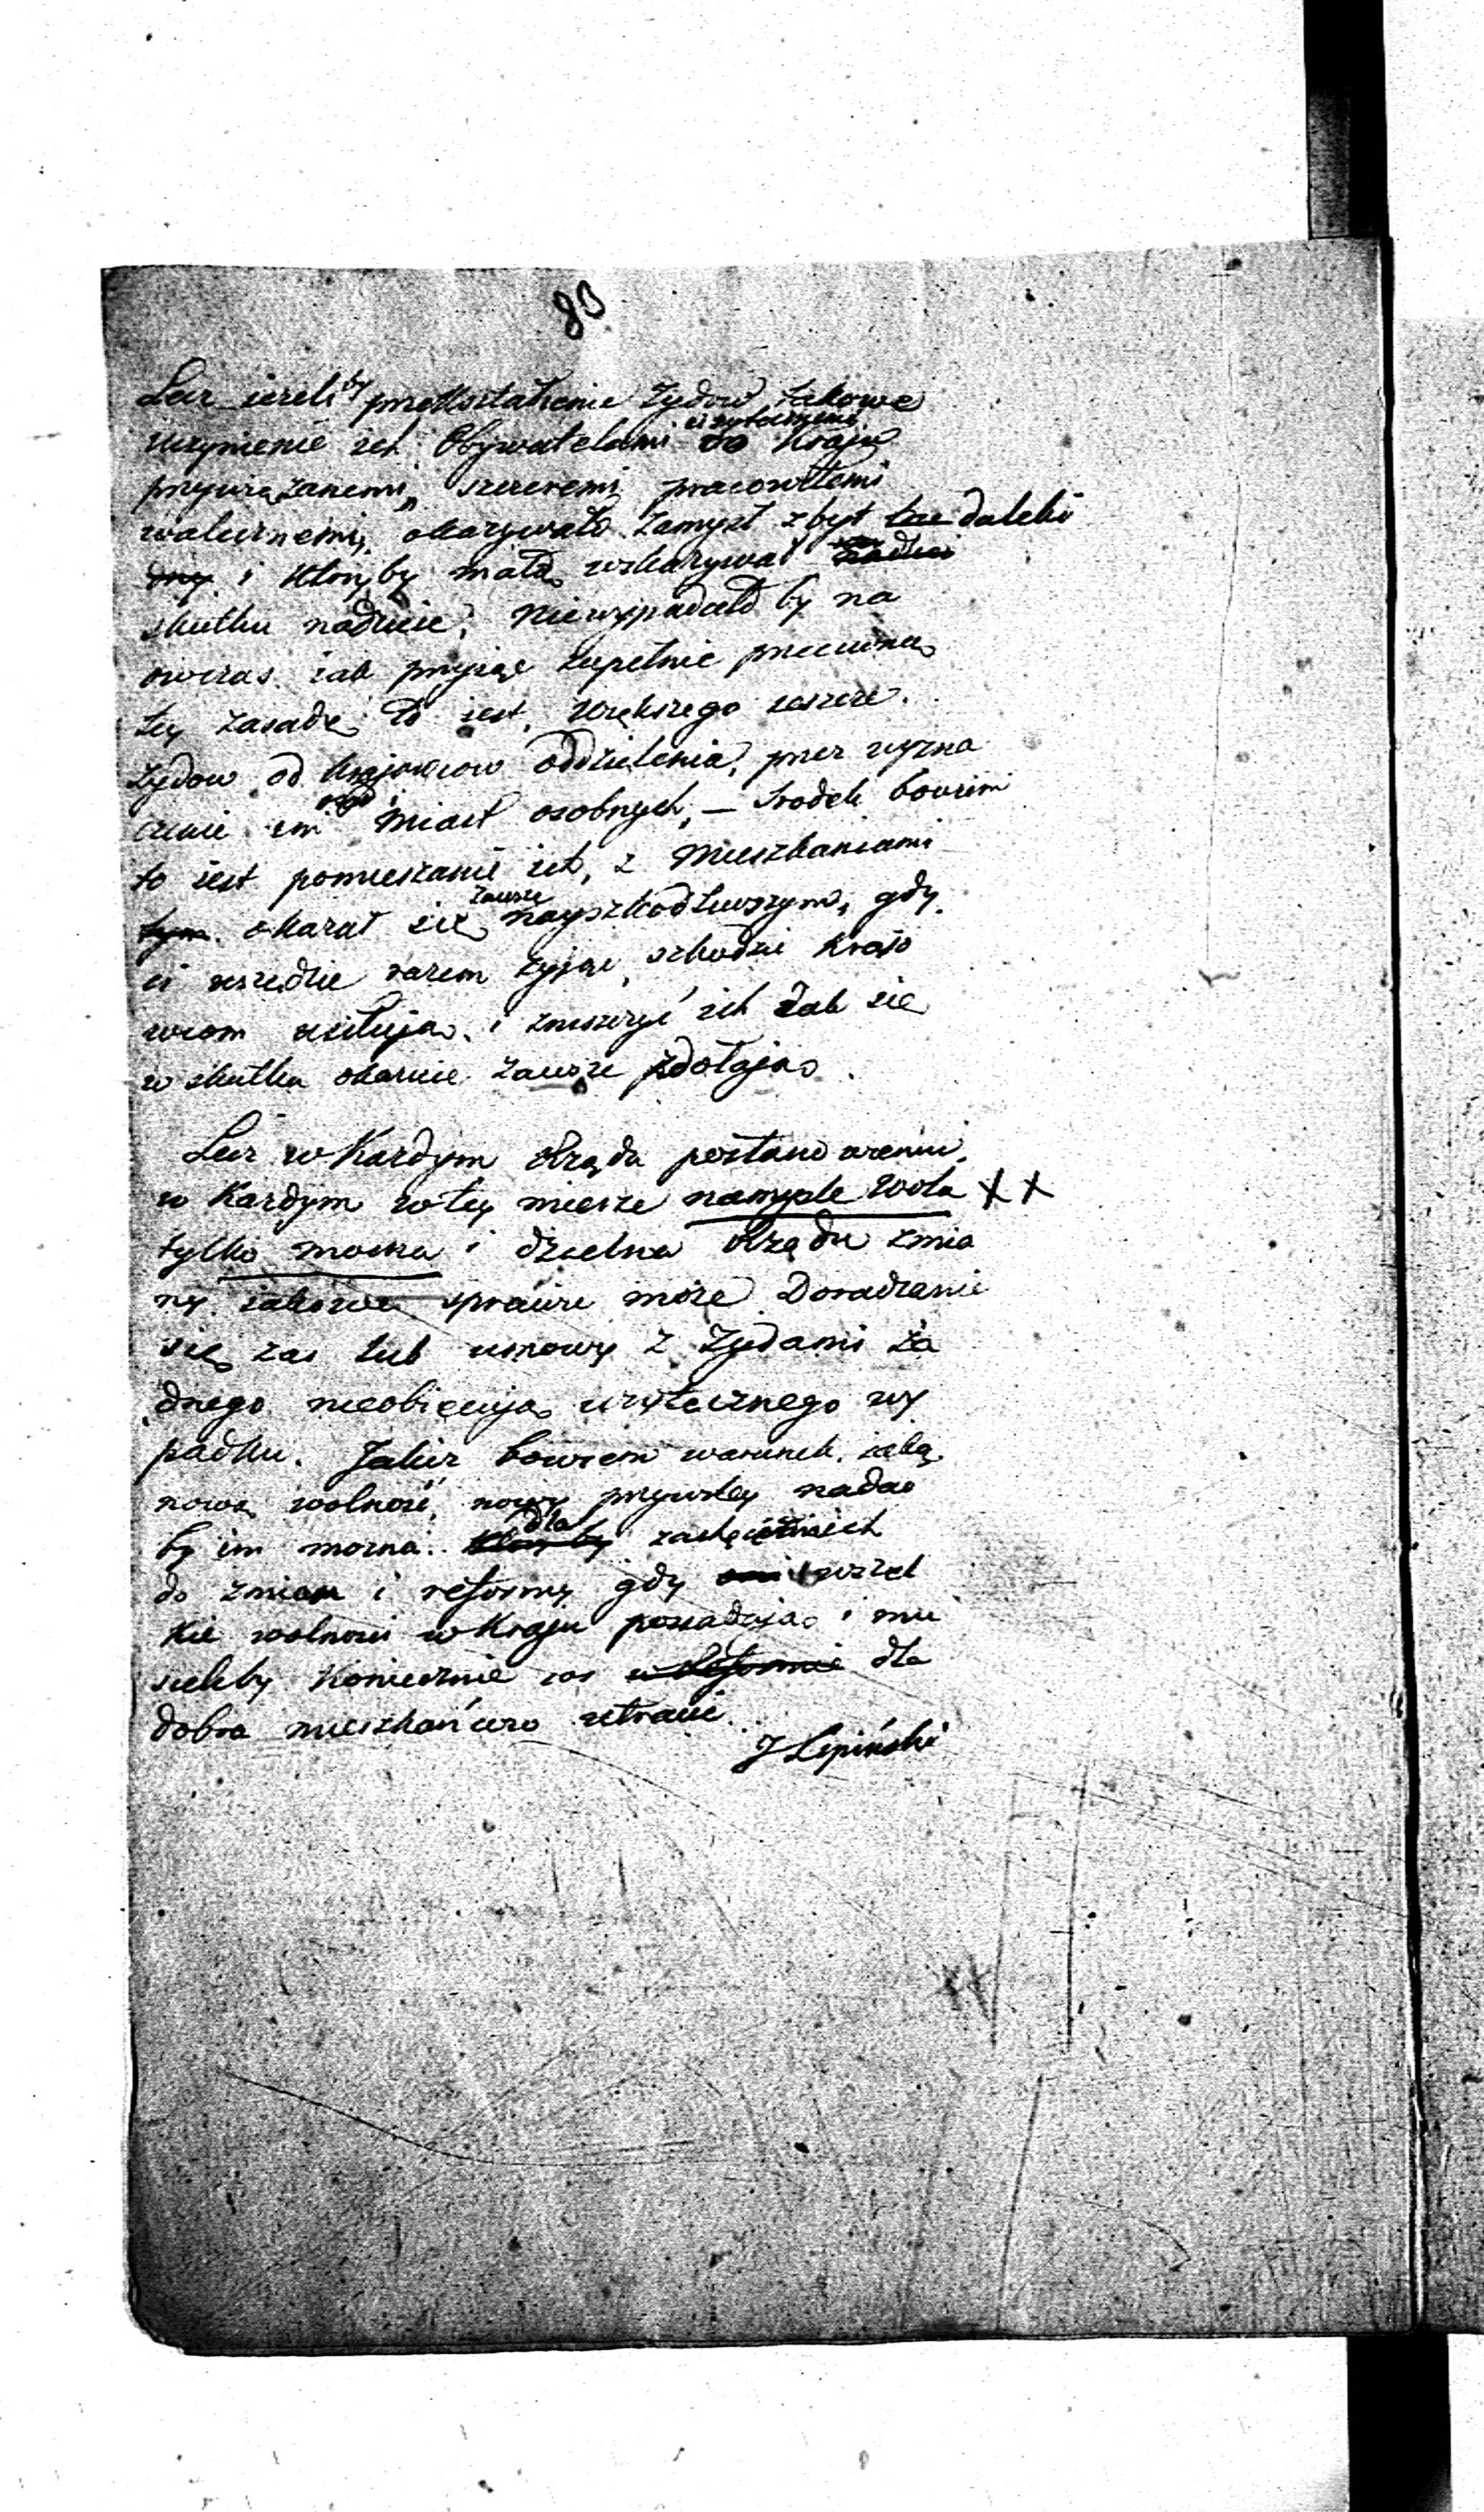 83
Lecz ieżeli by przekształcenie Żydow takowe
uczynienie ich Obywatelami użytecznemi do Kraju
przywiązanemi, szczeremi pracowitemi
walecznemi, okazywało zamysł zbyt daleki
i któryby małą wskazywał
skutku nadzieię; niewypadało by na
owczas iak przyiąć zupełnie przeciwną
tey zasadę to iest, większego ieszcze
Żydow od kraiowcow oddzielenia, przez wyzna
czenie im osad i Miast osobnych, — Srodek bowiem
to iest pomieszanie ich, z Mieszkańcami
okazał się zawsze nayszkodliwszym, gdy
ci wszędzie razem żyjąc, szkodzić krajo
wcom usiłują, i zniszczyć ich iak się
w skutku okazuie zawsze zdołają.
Lecz w Każdym Rządu postanowieniu,
w Każdym w tey mierze namyśle wola XX
tylko mocna i dzielna Rządu zmia
ny iakowe sprawić może Doradzanie
się zas lub umowy z Żydami ża
dnego nieobiecują użytecznego wy
padku. Jakiż bowiem warunek, iaką
nową wolność, nowy przywiley nadać
by im można dla zachęcenia ich
do zmian i reformy gdy wszel
kie wolności w Kraju posiadają i mu
sieliby koniecznie dla
dobra mieszkańcow utracić.
J Lipiński